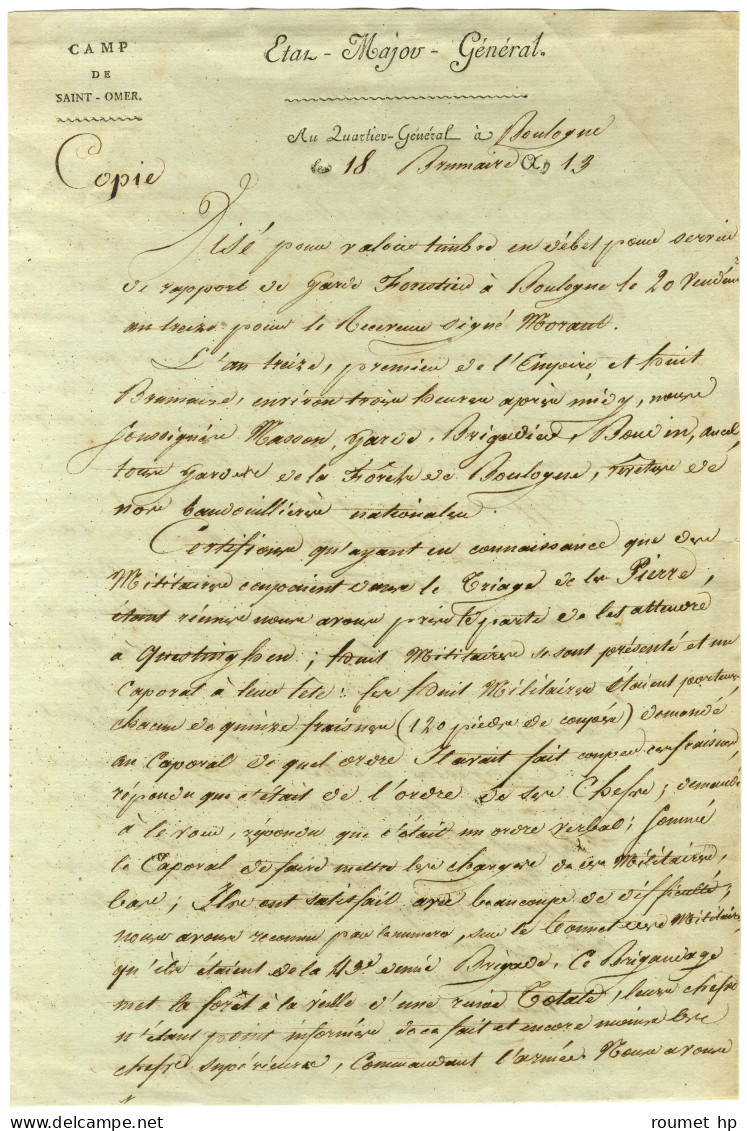 CAMP
DE
SAINT-OMER.
Etat-Major-Général.
Au Quartier-Général à Boulogne
le 18 Brumaire An 13
Copie
Visé pour valoir timbre en débet pour servir
de rapport de Garde Forestier à Boulogne le 20 Vendem.re
an treize pour le Receveur signé Morant.
L'an treize, premier de l'Empire, et huit
Brumaire, environ trois heures après midy, nous
soussignés Masson, Garde Brigadier, Boudin,
tous Gardes de la Forêt de Boulogne, revetus de
nos bandouillières nationales.
Certifions qu'ayant eu connaissance que des
Militaires coupaient dans le Triage de la Pierre,
étant réunis nous avons pris le parti de les attendre
à Questinghen; huit Militaires se sont présenté et un
Caporal à leur tête: les huit Militaires étaient porteurs
chacun de quinze fraisnes (120 pieds de coupés) demandé
au Caporal de quel ordre Il avait fait couper ces fraisnes,
répondu que c'était de l'ordre de ses Chefs; demandé
à le voir, répondu que c'était un ordre verbal; sommé
le Caporal de faire mettre les charges de ses Militaires,
bas; Ils ont satisfait avec beaucoup de difficulté;
nous avons reconnu par le numero, sur le bonnet des Militaires
qu'ils étaient de la 43e demie Brigade. Ce Brigandage
met la forêt à la veille d'une ruine Totale, leurs chefs
n'étant point informés de ce fait et encore moins les
chefs supérieurs, Commandant l'armée. Nous avons
© roumet hp